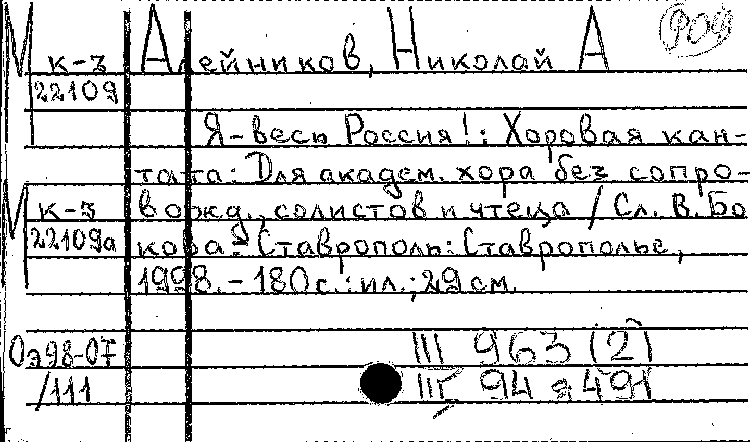 М к-з Алейников, Николай А
22109
Я-весь Россия!: Хоровая кан-
тата: Для академ. хора без сопро-
М к-з вожд., солистов и чтеца / Сл. В. Бо
22109а кова. Ставрополь: Ставрополье,
1998. - 180 с.: ил.; 29 см.
Оэ98-07 III 963 (2)
/111 III 94 491